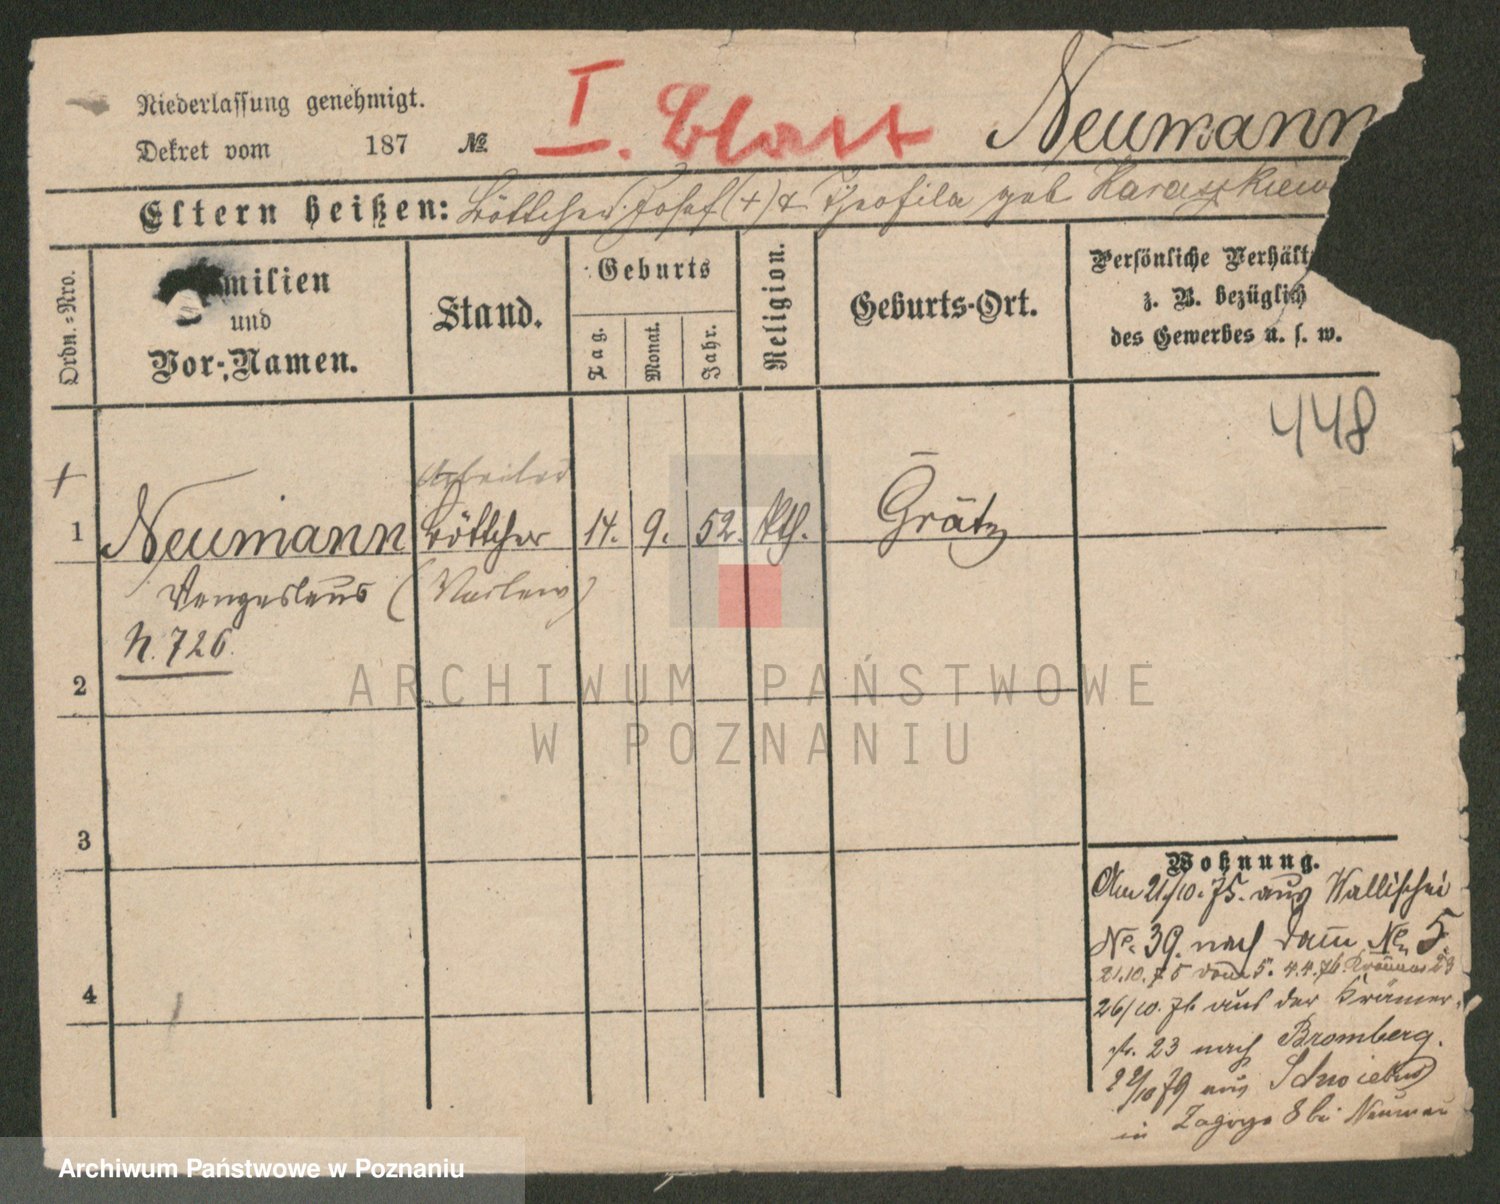 Niederlassung genehmigt.
I. Blatt
Neumann
Dekret vom 187 №
Eltern heißen: Böttcher Josef (+) & Theofila geb
Ordn.=Nro.
milien
und
Vor-Namen.
Stand.
Geburts
Tag.
Monat.
Jahr.
Religion.
Geburts-Ort.
Persönliche Verhält
z. B. bezüglich
des Gewerbes u. s. w.
448
+
Arbeiter
1 Neumann Böttcher 14. 9. 52. kth. Grätz
Wenzeslaus (Vaclaw)
N. 726
2
3
4
Wohnung.
Am 21/10.75. aus Wallischei
No. 39. nach Damm No. 5
21.10.75 Damm 5. 4.4.76. 23
26/10.76 aus der Krämer-
str. 23 nach Bromberg.
22/10 79 aus Schwiebus
in Zagorze 8 bei Neumann
ARCHIWUM PAŃSTWOWE
W POZNANIU
Archiwum Państwowe w Poznaniu